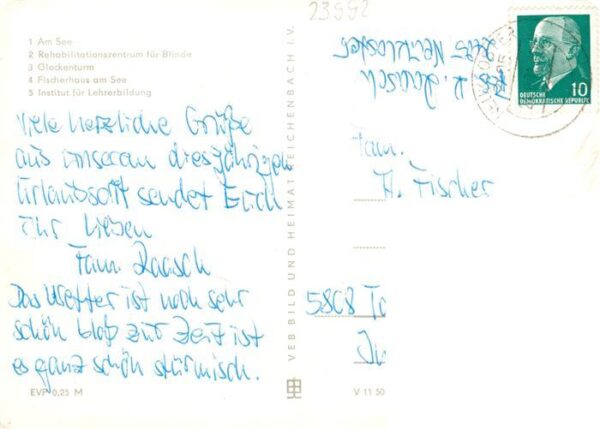 1 Am See
2 Rehabilitationszentrum für Blinde
3 Glockenturm
4 Fischerhaus am See
5 Institut für Lehrerbildung
Viele herzliche Grüße
aus unseren diesjährigen
Urlaubsort sendet Euch
Ihr Lieben
Fam. Raasch
Das Wetter ist noch sehr
schön bloß zur Zeit ist
es ganz schön stürmisch.
EVP 0,25 M
VEB BILD UND HEIMAT REICHENBACH I. V.
V 11 50
23992
R. Raasch
Neukloster
DEUTSCHE
DEMOKRATISCHE REPUBLIK
10
Fam.
A. Fischer
5808 Ta